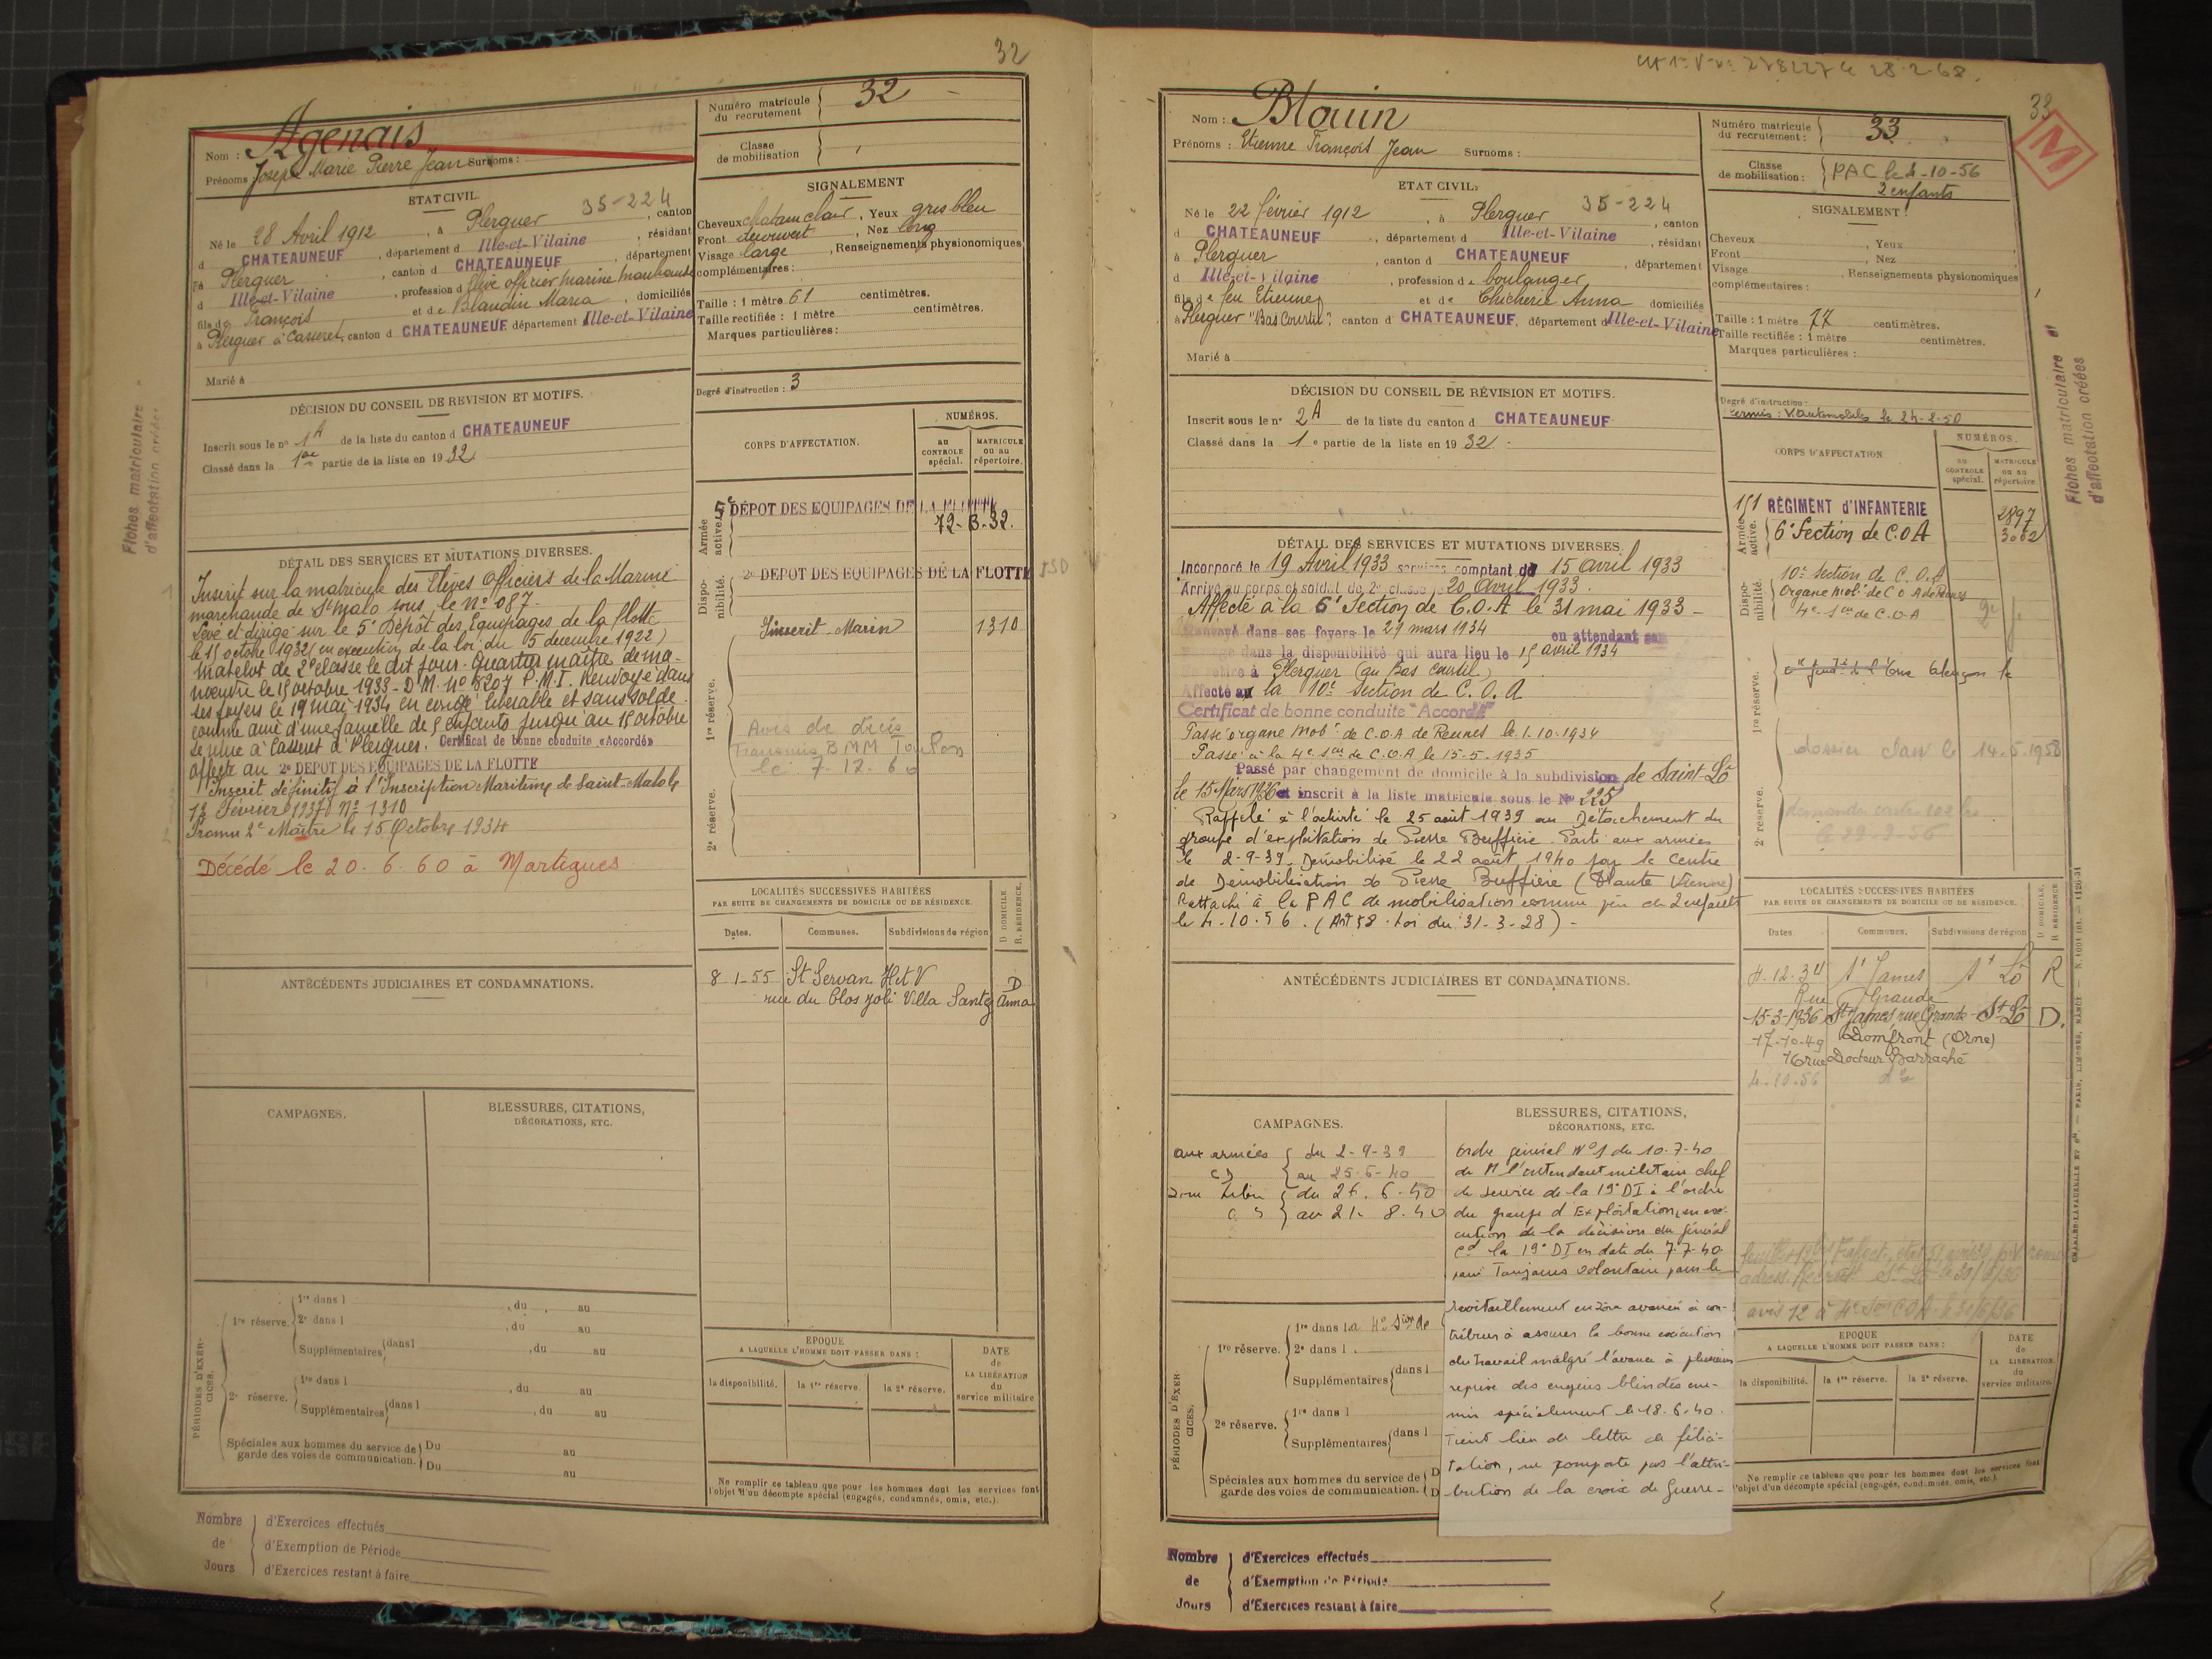 32
Nom : Agenais
Prénoms Joseph Marie Pierre Jean Surnoms :
Numéro matricule du recrutement 32
Classe de mobilisation
ETAT CIVIL.
35-224
Né le 28 Avril 1912, à Plerguer, canton
d CHATEAUNEUF, département d Ille-et-Vilaine, résidant
à Plerguer, canton d CHATEAUNEUF, département
d Ille-et-Vilaine, profession d élève officier marine marchande
fils de François et de Blandin Maria, domiciliés
à Plerguer à Casseret, canton d CHATEAUNEUF, département Ille-et-Vilaine
Marié à
SIGNALEMENT
Cheveux chatain clair, Yeux gris bleu
Front découvert, Nez long
Visage large, Renseignements physionomiques
complémentaires :
Taille : 1 mètre 61 centimètres.
Taille rectifiée : 1 mètre centimètres.
Marques particulières :
Degré d'instruction : 3
DÉCISION DU CONSEIL DE RÉVISION ET MOTIFS.
Inscrit sous le nº 1A de la liste du canton d CHATEAUNEUF
Classé dans la 1ère partie de la liste en 1932
Fiches matriculaire
d'affectation créées
DÉTAIL DES SERVICES ET MUTATIONS DIVERSES.
Inscrit sur la matricule des Elèves Officiers de la Marine
marchande de St Malo sous le nº 087.
Levé et dirigé sur le 5e Dépôt des Equipages de la flotte
le 15 octobre 1932 (en exécution de la loi du 15 décembre 1922)
Matelot de 2e classe le dit jour. Quartier maître de ma-
noeuvre le 15 octobre 1933 - D.M. nº 8207 P.M.I. Renvoyé dans
ses foyers le 19 mai 1934 en congé libérable et sans solde
comme ainé d'une famille de 5 enfants jusqu'au 15 octobre
Se retire à Casseret à Plerguer. Certificat de bonne conduite «Accordé»
Affecté au 2e DEPOT DES EQUIPAGES DE LA FLOTTE
Inscrit définitif à l'Inscription Maritime de Saint-Malo le
13 Février 1937 Nº 1310
Promu 2e Maître le 15 Octobre 1934
Décédé le 20.6.60 à Martigues
CORPS D'AFFECTATION.
NUMÉROS.
au CONTROLE spécial.
MATRICULE ou au répertoire.
Armée active.
5e DÉPOT DES EQUIPAGES DE LA FLOTTE
72-B-32.
Dispo-nibilité.
2e DEPOT DES EQUIPAGES DE LA FLOTTE
Inscrit Marin 1310
1re réserve.
Avis de décès
Transmis B M M Toulon
le 7.12.60
2e réserve.
LOCALITÉS SUCCESSIVES HABITÉES
PAR SUITE DE CHANGEMENTS DE DOMICILE OU DE RÉSIDENCE.
Dates.
Communes.
Subdivisions de région
D DOMICILE, R. RÉSIDENCE.
8-1-55 St Servan I et V D
rue du Clos Joli Villa Santa Anna
ANTÉCÉDENTS JUDICIAIRES ET CONDAMNATIONS.
CAMPAGNES.
BLESSURES, CITATIONS,
DÉCORATIONS, ETC.
PÉRIODES D'EXER-CICES.
1re réserve.
1re dans l , du au
2e dans l , du au
Supplémentaires dans l , du au
2e réserve.
1re dans l , du au
Supplémentaires dans l , du au
Spéciales aux hommes du service de garde des voies de communication.
Du au
Du au
EPOQUE
A LAQUELLE L'HOMME DOIT PASSER DANS :
la disponibilité.
la 1re réserve.
la 2e réserve.
DATE de LA LIBÉRATION du service militaire
Ne remplir ce tableau que pour les hommes dont les services font
l'objet d'un décompte spécial (engagés, condamnés, omis, etc.).
Nombre de Jours
d'Exercices effectués
d'Exemption de Période
d'Exercices restant à faire
33
M
Nom : Blouin
Prénoms : Etienne François Jean Surnoms :
Numéro matricule du recrutement : 33
Classe de mobilisation : PAC le 4-10-56
2 enfants
ETAT CIVIL.
35-224
Né le 22 février 1912, à Plerguer, canton
d CHATEAUNEUF, département d Ille-et-Vilaine, résidant
à Plerguer, canton d CHATEAUNEUF, département
d Ille-et-Vilaine, profession de boulanger
fils de feu Etienne et de Chicherie Anna domiciliés
à Plerguer "Bas Courtil", canton d CHATEAUNEUF, département d Ille-et-Vilaine
Marié à
SIGNALEMENT :
Cheveux , Yeux
Front , Nez
Visage , Renseignements physionomiques
complémentaires :
Taille : 1 mètre 77 centimètres.
Taille rectifiée : 1 mètre centimètres.
Marques particulières :
Degré d'instruction :
Permis : V. automobiles le 24-2-50
DÉCISION DU CONSEIL DE RÉVISION ET MOTIFS.
Inscrit sous le nº 2A de la liste du canton d CHATEAUNEUF
Classé dans la 1e partie de la liste en 1932
Fiches matriculaire et
d'affectation créées
DÉTAIL DES SERVICES ET MUTATIONS DIVERSES.
Incorporé le 19 Avril 1933 services comptant du 15 avril 1933
Arrivé au corps et soldat de 2e classe le 20 avril 1933.
Affecté à la 6e Section de C.O.A le 31 mai 1933 -
Renvoyé dans ses foyers le 29 mars 1934 en attendant son
passage dans la disponibilité qui aura lieu le 15 avril 1934
Se retire à Plerguer (au Bas Courtil)
Affecté à la 10e Section de C.O.A
Certificat de bonne conduite "Accordé"
Passé organe Mobr de C.O.A de Rennes le 1.10.1934
Passé à la 4e son de C.O.A le 15-5-1935
Passé par changement de domicile à la subdivision de Saint-Lô
le 15 Mars 1936 et inscrit à la liste matricule sous le Nº 225
Rappelé à l'activité le 25 août 1939 au Détachement du
groupe d'exploitation de Pierre Buffière. Parti aux armées
le 2-9-39. Démobilisé le 22 août 1940 par le Centre
de Démobilisation de Pierre Buffière (Haute Vienne)
Rattaché à la PAC de mobilisation comme père de 2 enfants
le 4-10-56. (Art 58. Loi du 31-3-28) -
CORPS D'AFFECTATION
NUMÉROS.
au CONTROLE spécial.
MATRICULE ou au répertoire.
Armée active.
151 RÉGIMENT d'INFANTERIE 2897
6e Section de C.O.A 3002
Dispo-nibilité.
10e Section de C.O.A
Organe Mobr de C.O.A de Rennes
4e son de C.O.A
1re réserve.
Alençon le
dossier classé le 14.5.1958
2e réserve.
demande carte
le 29-2-56
LOCALITÉS SUCCESSIVES HABITÉES
PAR SUITE DE CHANGEMENTS DE DOMICILE OU DE RÉSIDENCE.
Dates
Communes.
Subdivisions de région
D DOMICILE, R RÉSIDENCE
4-12-34 St James St Lô R
Rue Grande
15-3-1936 St James rue Grande St Lô D.
17-10-49 Domfront (Orne)
16 rue Docteur Barraché
4-10-56 do
avis 12 à 4e Son COA le 30/6/36
ANTÉCÉDENTS JUDICIAIRES ET CONDAMNATIONS.
CAMPAGNES.
aux armées du 2-9-39
au 25-6-40
Zone Libre du 26.6.40
au 21.8.40
BLESSURES, CITATIONS,
DÉCORATIONS, ETC.
Ordre général Nº 1 du 10-7-40
de M l'intendant militaire chef
de service de la 19e DI à l'ordre
du groupe d'Exploitation, en exé-
cution de la décision du général
Cdt la 19e DI en date du 7-7-40.
Toujours volontaire pour le
ravitaillement en zone avancée a con-
tribué à assurer la bonne exécution
du travail malgré l'avance à plusieurs
reprises des engins blindés enne-
mis spécialement le 18.6.40.
Tient lieu de lettre de félici-
tation, ne comporte pas l'attri-
bution de la croix de Guerre -
PÉRIODES D'EXER-CICES.
1re réserve.
1re dans la 4e Son de
2e dans l
Supplémentaires dans l
2e réserve.
1re dans l
Supplémentaires dans l
Spéciales aux hommes du service de
garde des voies de communication.
EPOQUE
A LAQUELLE L'HOMME DOIT PASSER DANS :
la disponibilité.
la 1re réserve.
la 2e réserve.
DATE de LA LIBÉRATION du service militaire.
Ne remplir ce tableau que pour les hommes dont les services font
l'objet d'un décompte spécial (engagés, condamnés, omis, etc.).
Nombre de Jours
d'Exercices effectués
d'Exemption de Période
d'Exercices restant à faire